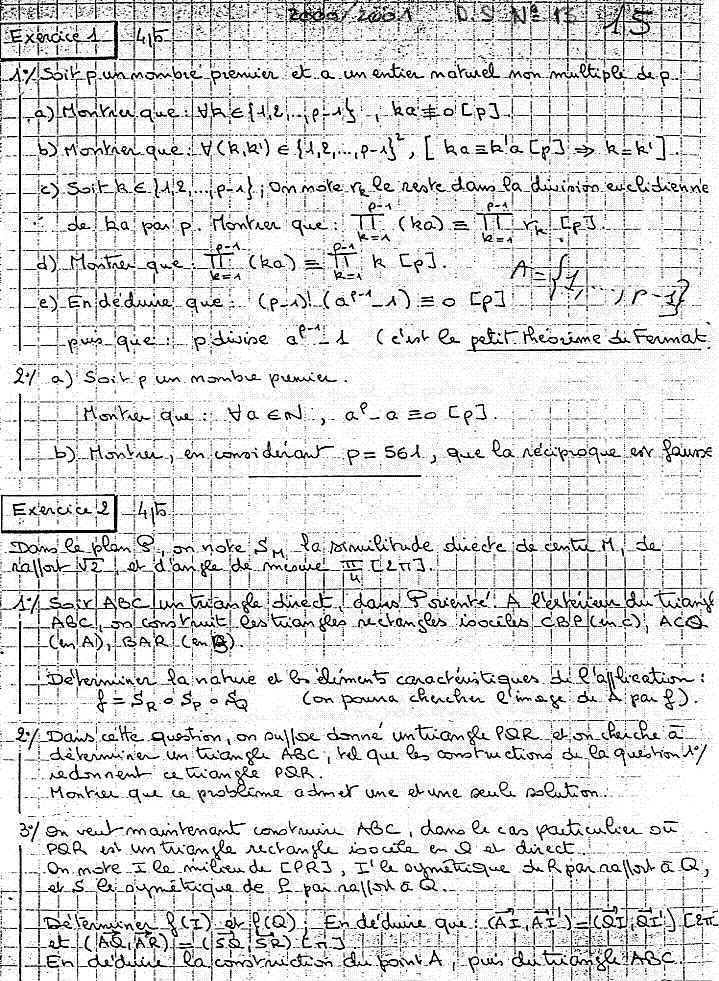 2000/2001 D.S N° 15 15
Exercice 1 4,5
1°/ Soit p un nombre premier et a un entier naturel non multiple de p.
a) Montrer que : ∀k ∈ {1,2,...,p-1}, ka ≢ 0 [p].
b) Montrer que : ∀(k,k') ∈ {1,2,...,p-1}², [ ka ≡ k'a [p] ⇒ k = k' ].
c) Soit k ∈ {1,2,...,p-1} ; On note r_k le reste dans la division euclidienne
de ka par p. Montrer que : ∏_{k=1}^{p-1} (ka) ≡ ∏_{k=1}^{p-1} r_k [p].
d) Montrer que : ∏_{k=1}^{p-1} (ka) ≡ ∏_{k=1}^{p-1} k [p].
A = {1, ..., p-1}
e) En déduire que : (p-1)! (a^{p-1} - 1) ≡ 0 [p]
puis que : p divise a^{p-1} - 1 (c'est le petit théorème de Fermat)
2°/ a) Soit p un nombre premier.
Montrer que : ∀a ∈ ℕ, a^p - a ≡ 0 [p].
b) Montrer, en considérant p = 561, que la réciproque est fausse
Exercice 2 4,5
Dans le plan P, on note S_M la similitude directe de centre M, de
rapport √2, et d'angle de mesure π/4 [2π].
1°/ Soit ABC un triangle direct, dans P orienté. A l'extérieur du triangle
ABC, on construit les triangles rectangles isocèles CBP (en C), ACQ
(en A), BAR (en B).
Déterminer la nature et les éléments caractéristiques de l'application :
f = S_R ∘ S_P ∘ S_Q (on pourra chercher l'image de A par f).
2°/ Dans cette question, on suppose donné un triangle PQR et on cherche à
déterminer un triangle ABC, tel que les constructions de la question 1°/
redonnent ce triangle PQR.
Montrer que ce problème admet une et une seule solution.
3°/ On veut maintenant construire ABC, dans le cas particulier où
PQR est un triangle rectangle isocèle en Q et direct.
On note I le milieu de [PR], I' le symétrique de R par rapport à Q,
et S le symétrique de P par rapport à Q.
Déterminer f(I) et f(Q) ; En déduire que : (AI, AI') = (QI, QI') [2π]
et (AQ, AR) = (SQ, SR) [π]
En déduire la construction du point A, puis du triangle ABC.